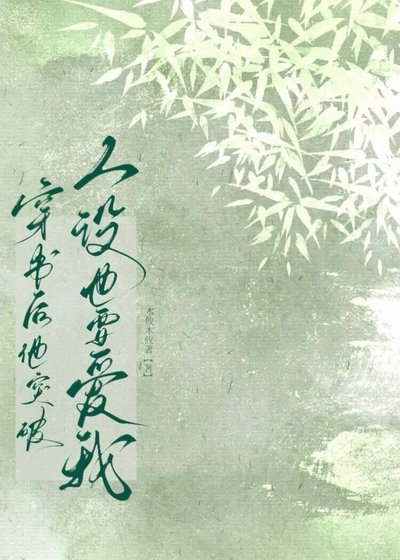 穿书后他突破
人设也要爱我
木攸木攸著【著】